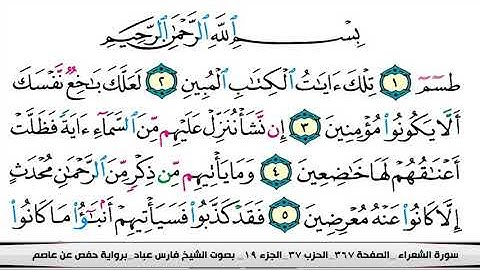 بِسْمِ اللَّهِ الرَّحْمَٰنِ الرَّحِيمِ
طسٓمٓ ١ تِلْكَ ءَايَٰتُ الْكِتَٰبِ الْمُبِينِ ٢ لَعَلَّكَ بَٰخِعٌ نَّفْسَكَ
أَلَّا يَكُونُوا۟ مُؤْمِنِينَ ٣ إِن نَّشَأْ نُنَزِّلْ عَلَيْهِم مِّنَ السَّمَآءِ ءَايَةً فَظَلَّتْ
أَعْنَٰقُهُمْ لَهَا خَٰضِعِينَ ٤ وَمَا يَأْتِيهِم مِّن ذِكْرٍ مِّنَ الرَّحْمَٰنِ مُحْدَثٍ
إِلَّا كَانُوا۟ عَنْهُ مُعْرِضِينَ ٥ فَقَدْ كَذَّبُوا۟ فَسَيَأْتِيهِمْ أَنۢبَٰٓؤُا۟ مَا كَانُوا۟
سورة الشعراء _الصفحة ٣٦٧_ الحزب ٣٧_ الجزء ١٩_ بصوت الشيخ فارس عباد_ برواية حفص عن عاصم